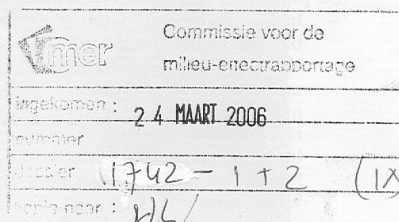 mer
Commissie voor de
milieu-effectrapportage
ingekomen : 24 MAART 2006
nummer
dossier 1742 - 1 + 2 (1x
kopie naar :